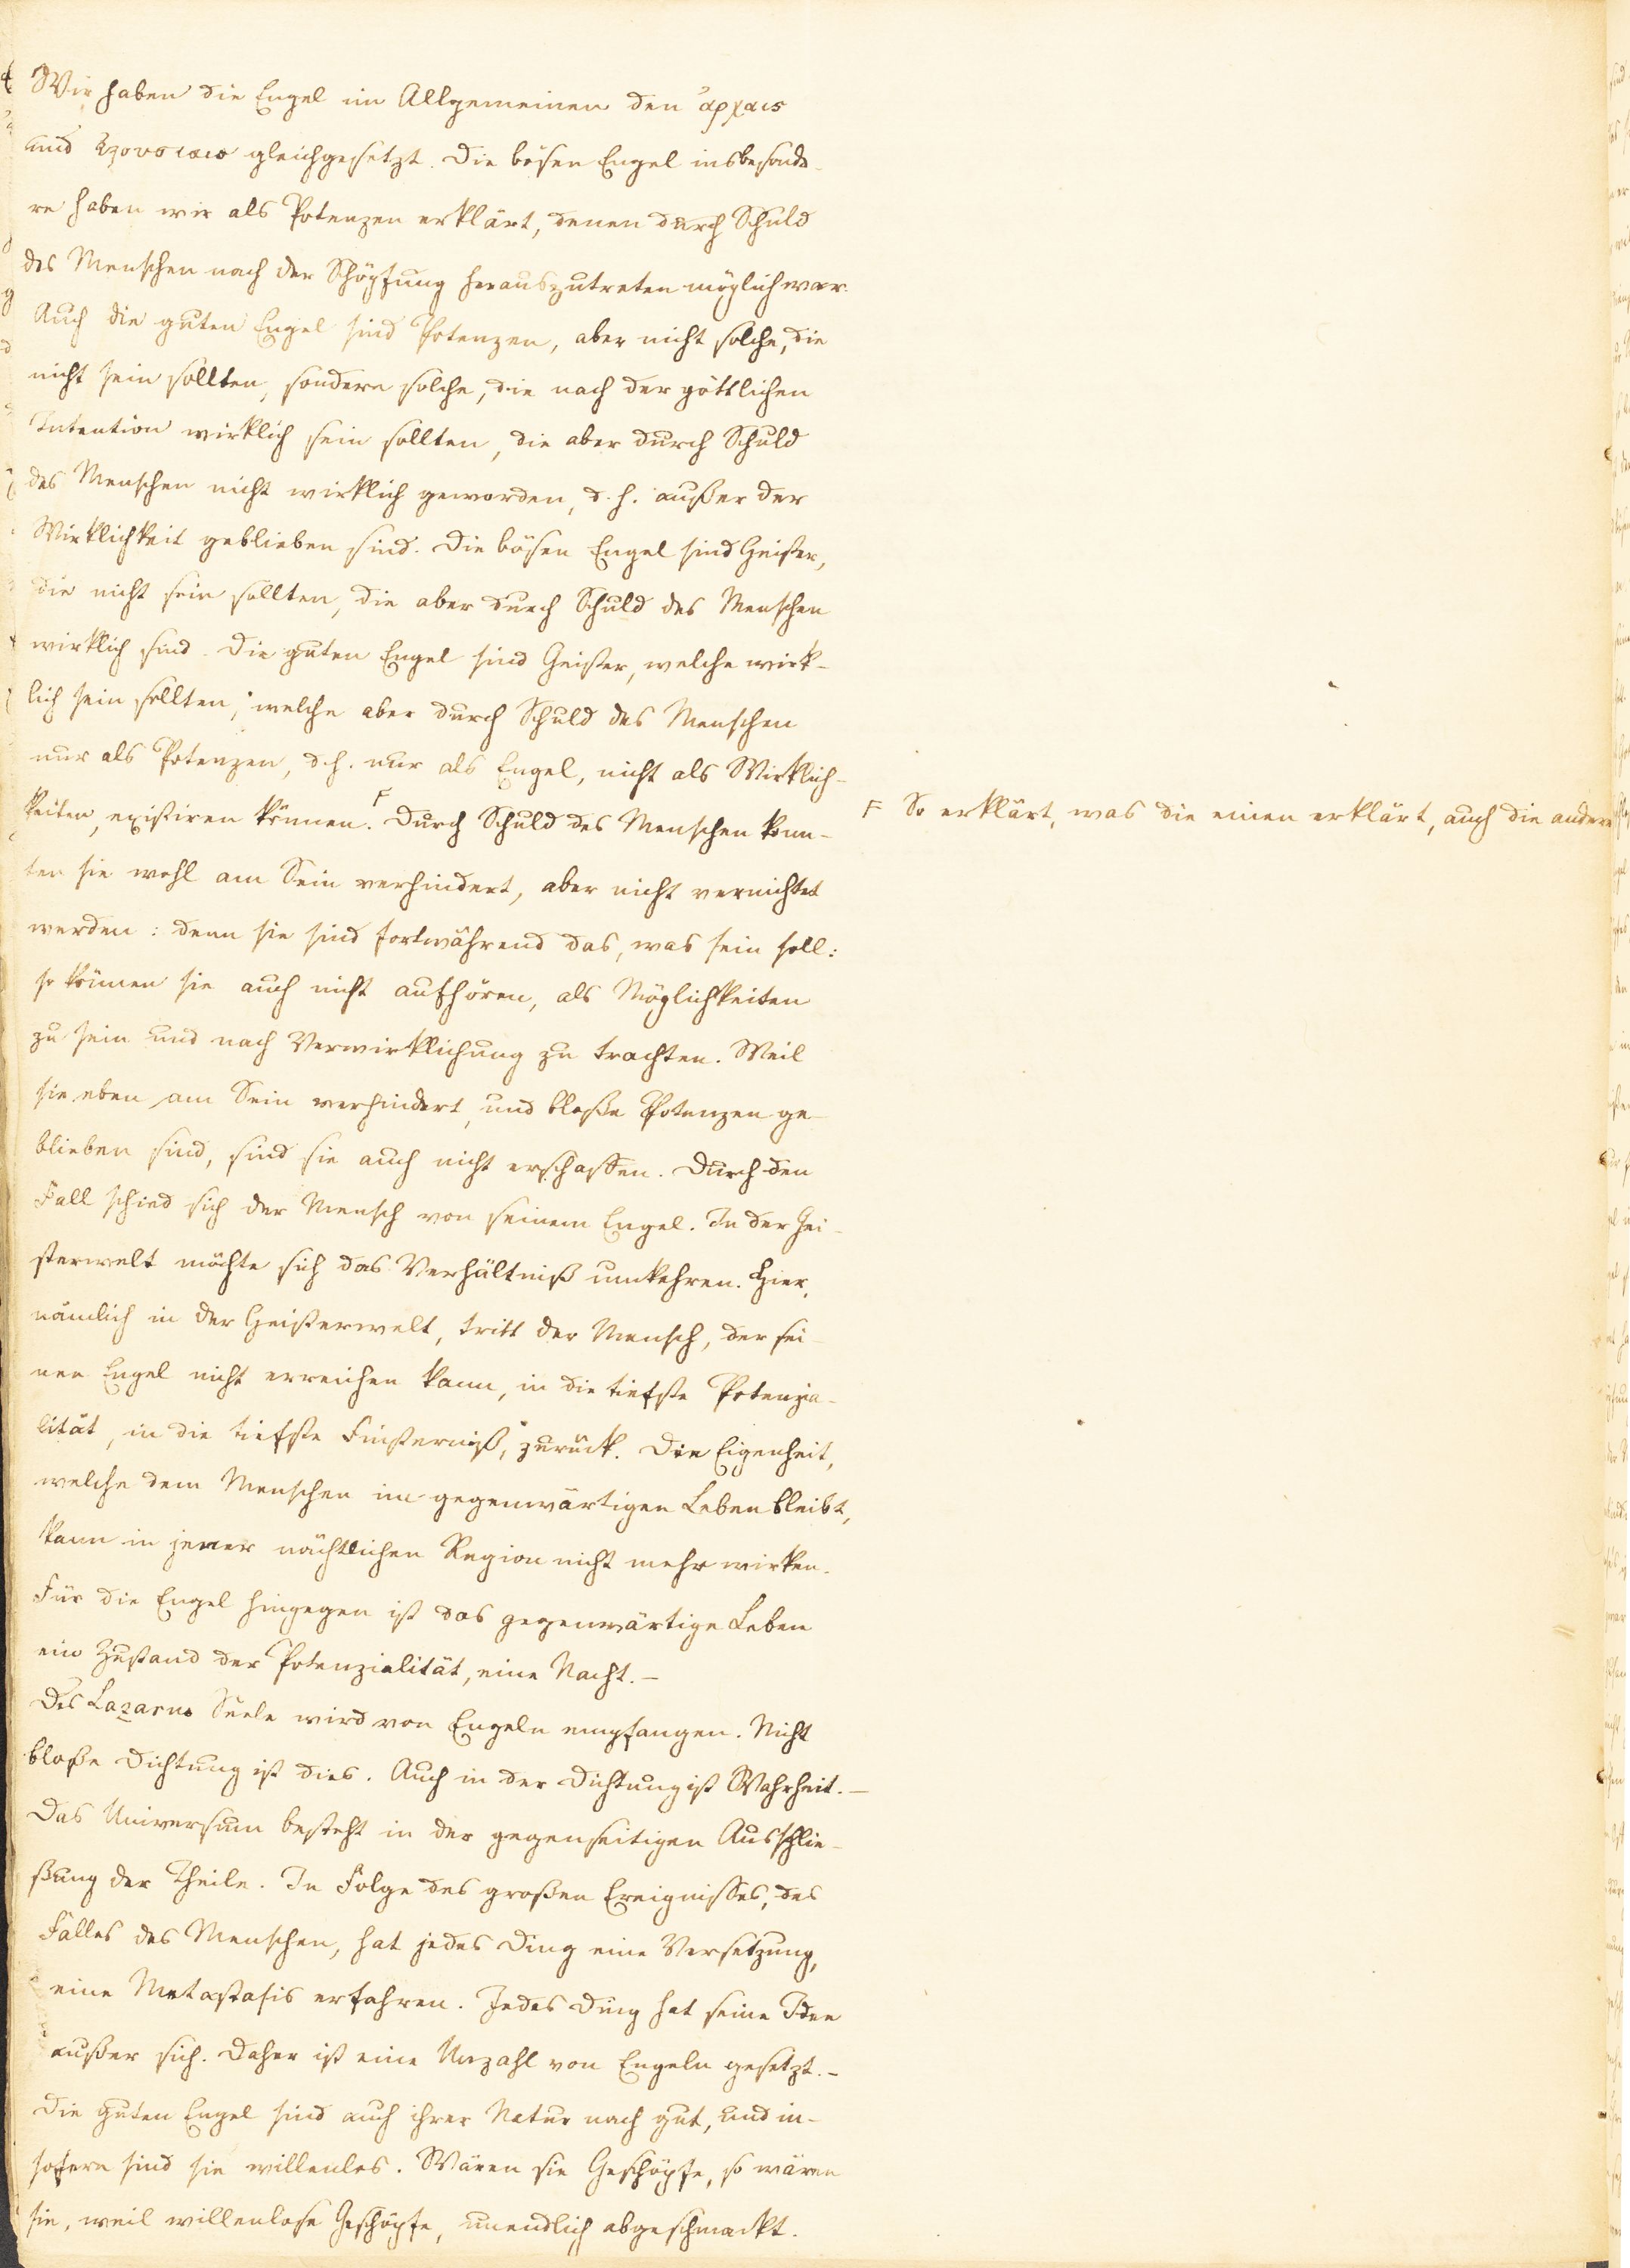 Wir haben die Engel im Allgemeinen den ἀρχαις
und ἐξουσιαις gleichgesetzt. Die bösen Engel insbesonde-
re haben wir als Potenzen erklärt, denen durch Schuld
des Menschen nach der Schöpfung herauszutreten möglich war.
Auch die guten Engel sind Potenzen, aber nicht solche, die
nicht sein sollten, sondern solche, die nach der göttlichen
Intention wirklich sein sollten, die aber durch Schuld
des Menschen nicht wirklich geworden, d. h. außer der
Wirklichkeit geblieben sind. Die bösen Engel sind Geister,
die nicht sein sollten, die aber durch Schuld des Menschen
wirklich sind. Die guten Engel sind Geister, welche wirk-
lich sein sollten, welche aber durch Schuld des Menschen
nur als Potenzen, d. h. nur als Engel, nicht als Wirklich-
keiten, existiren können. F Durch Schuld des Menschen konn-
F So erklärt, was die einen erklärt, auch die andern
ten sie wohl am Sein verhindert, aber nicht vernichtet
werden: denn sie sind fortwährend das, was sein soll:
so können sie auch nicht aufhören, als Möglichkeiten
zu sein und nach Verwirklichung zu trachten. Weil
sie eben am Sein verhindert, und bloße Potenzen ge-
blieben sind, sind sie auch nicht erschaffen. Durch den
Fall schied sich der Mensch von seinem Engel. In der Gei-
sterwelt möchte sich das Verhältniß umkehren. Hier,
nämlich in der Geisterwelt, tritt der Mensch, der sei-
nen Engel nicht erreichen kann, in die tiefste Potenzia-
lität, in die tiefste Finsterniß, zurück. Die Eigenheit,
welche dem Menschen im gegenwärtigen Leben bleibt,
kann in jener nächtlichen Region nicht mehr wirken.
Für die Engel hingegen ist das gegenwärtige Leben
ein Zustand der Potenzialität, eine Nacht. –
Des Lazarus Seele wird von Engeln empfangen. Nicht
bloße Dichtung ist dies. Auch in der Dichtung ist Wahrheit. –
Das Universum besteht in der gegenseitigen Ausschlie-
ßung der Theile. In Folge des großen Ereignisses, des
Falles des Menschen, hat jedes Ding eine Versetzung,
eine Metastasis erfahren. Jedes Ding hat seine Idee
außer sich. Daher ist eine Unzahl von Engeln gesetzt. –
Die guten Engel sind auch ihrer Natur nach gut, und in-
sofern sind sie willenlos. Wären sie Geschöpfe, so wären
sie, weil willenlose Geschöpfe, unendlich abgeschmackt.